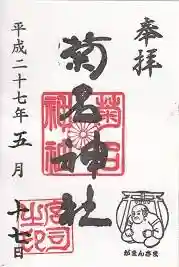 奉拝
菊名神社
平成二十七年五月十七日
がまんさま